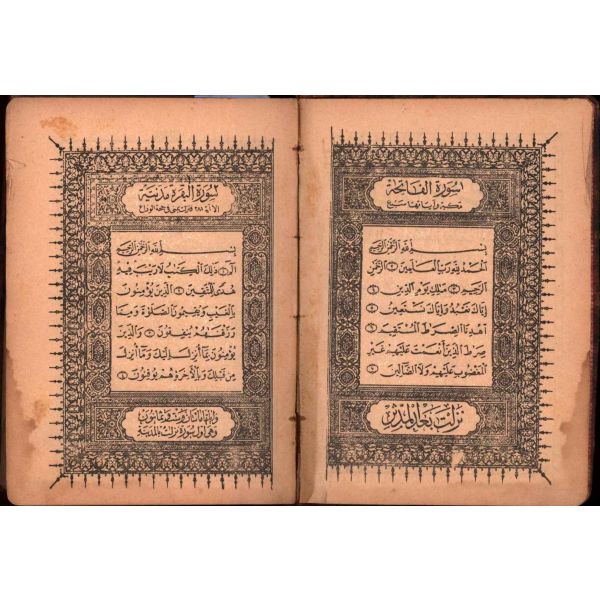 سورة الفاتحة
مكية وآياتها سبع
بِسْمِ اللَّهِ الرَّحْمَٰنِ الرَّحِيمِ
الْحَمْدُ لِلَّهِ رَبِّ الْعَالَمِينَ ﴿٢﴾ الرَّحْمَٰنِ
الرَّحِيمِ ﴿٣﴾ مَالِكِ يَوْمِ الدِّينِ ﴿٤﴾
إِيَّاكَ نَعْبُدُ وَإِيَّاكَ نَسْتَعِينُ ﴿٥﴾
اهْدِنَا الصِّرَاطَ الْمُسْتَقِيمَ ﴿٦﴾
صِرَاطَ الَّذِينَ أَنْعَمْتَ عَلَيْهِمْ غَيْرِ
الْمَغْضُوبِ عَلَيْهِمْ وَلَا الضَّالِّينَ ﴿٧﴾
نزلت بعد المدثر
سورة البقرة مدنية
إلا آية ٢٨١ فنزلت بمنى في حجة الوداع
بِسْمِ اللَّهِ الرَّحْمَٰنِ الرَّحِيمِ
الٓمٓ ﴿١﴾ ذَٰلِكَ الْكِتَٰبُ لَا رَيْبَ فِيهِ
هُدًى لِلْمُتَّقِينَ ﴿٢﴾ الَّذِينَ يُؤْمِنُونَ
بِالْغَيْبِ وَيُقِيمُونَ الصَّلَوٰةَ وَمِمَّا
رَزَقْنَٰهُمْ يُنْفِقُونَ ﴿٣﴾ وَالَّذِينَ
يُؤْمِنُونَ بِمَا أُنْزِلَ إِلَيْكَ وَمَا أُنْزِلَ
مِنْ قَبْلِكَ وَبِالْآخِرَةِ هُمْ يُوقِنُونَ ﴿٤﴾
وآياتها مائتان وست وثمانون
وهي أول سورة نزلت بالمدينة